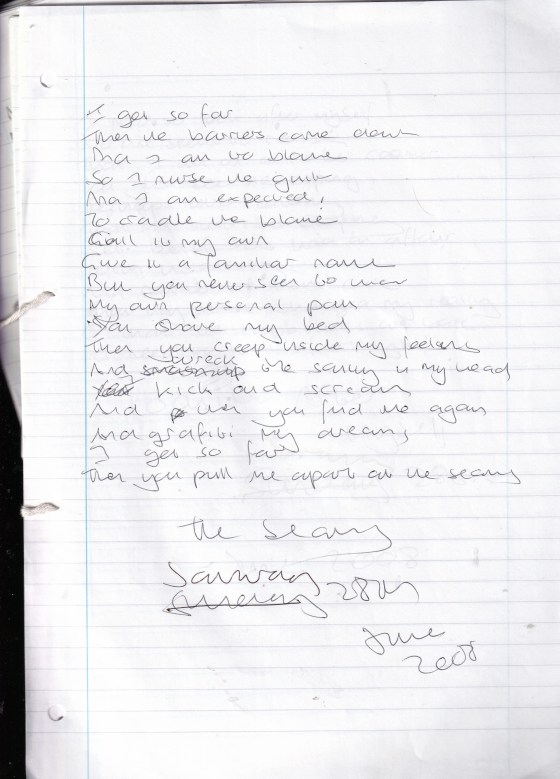 I get so far
Then the barriers come down
And I am to blame
So I nurse the guilt
And I am expected
To cradle the blame
Guilt is my own
Give it a familiar name
But you never seen to wear
My own personal pain
You share my bed
Then you creep inside my feelings
And wreck the sanity in my head
kick and scream
And when you find me again
And grafiti my dreams
I get so far
Then you pull me apart at the seams
The Seams
Saturday
28th
June
2008